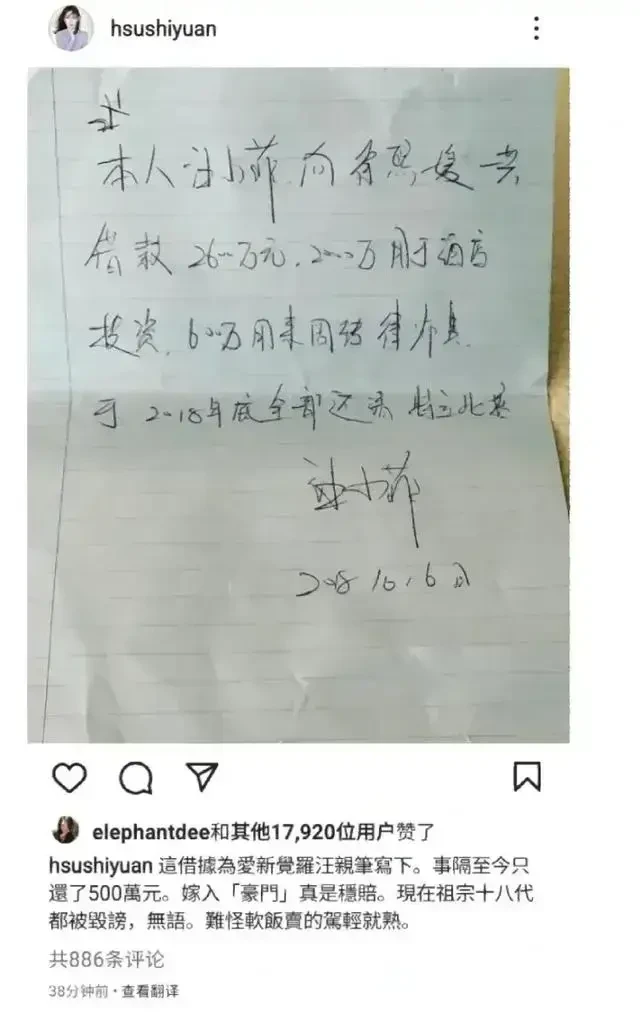 hsushiyuan
本人汪小菲 向徐熙媛共
借款2600万元,2000万用于酒店
投资,600万用来周转
于2018年底全部还清 特立此
汪小菲
2018 10.6日
elephantdee和其他17,920位用户赞了
hsushiyuan 這借據為愛新覺羅汪親筆寫下。事隔至今只
還了500萬元。嫁入「豪門」真是穩賠。現在祖宗十八代
都被毀謗，無語。難怪軟飯賣的駕輕就熟。
共886条评论
38分钟前·查看翻译